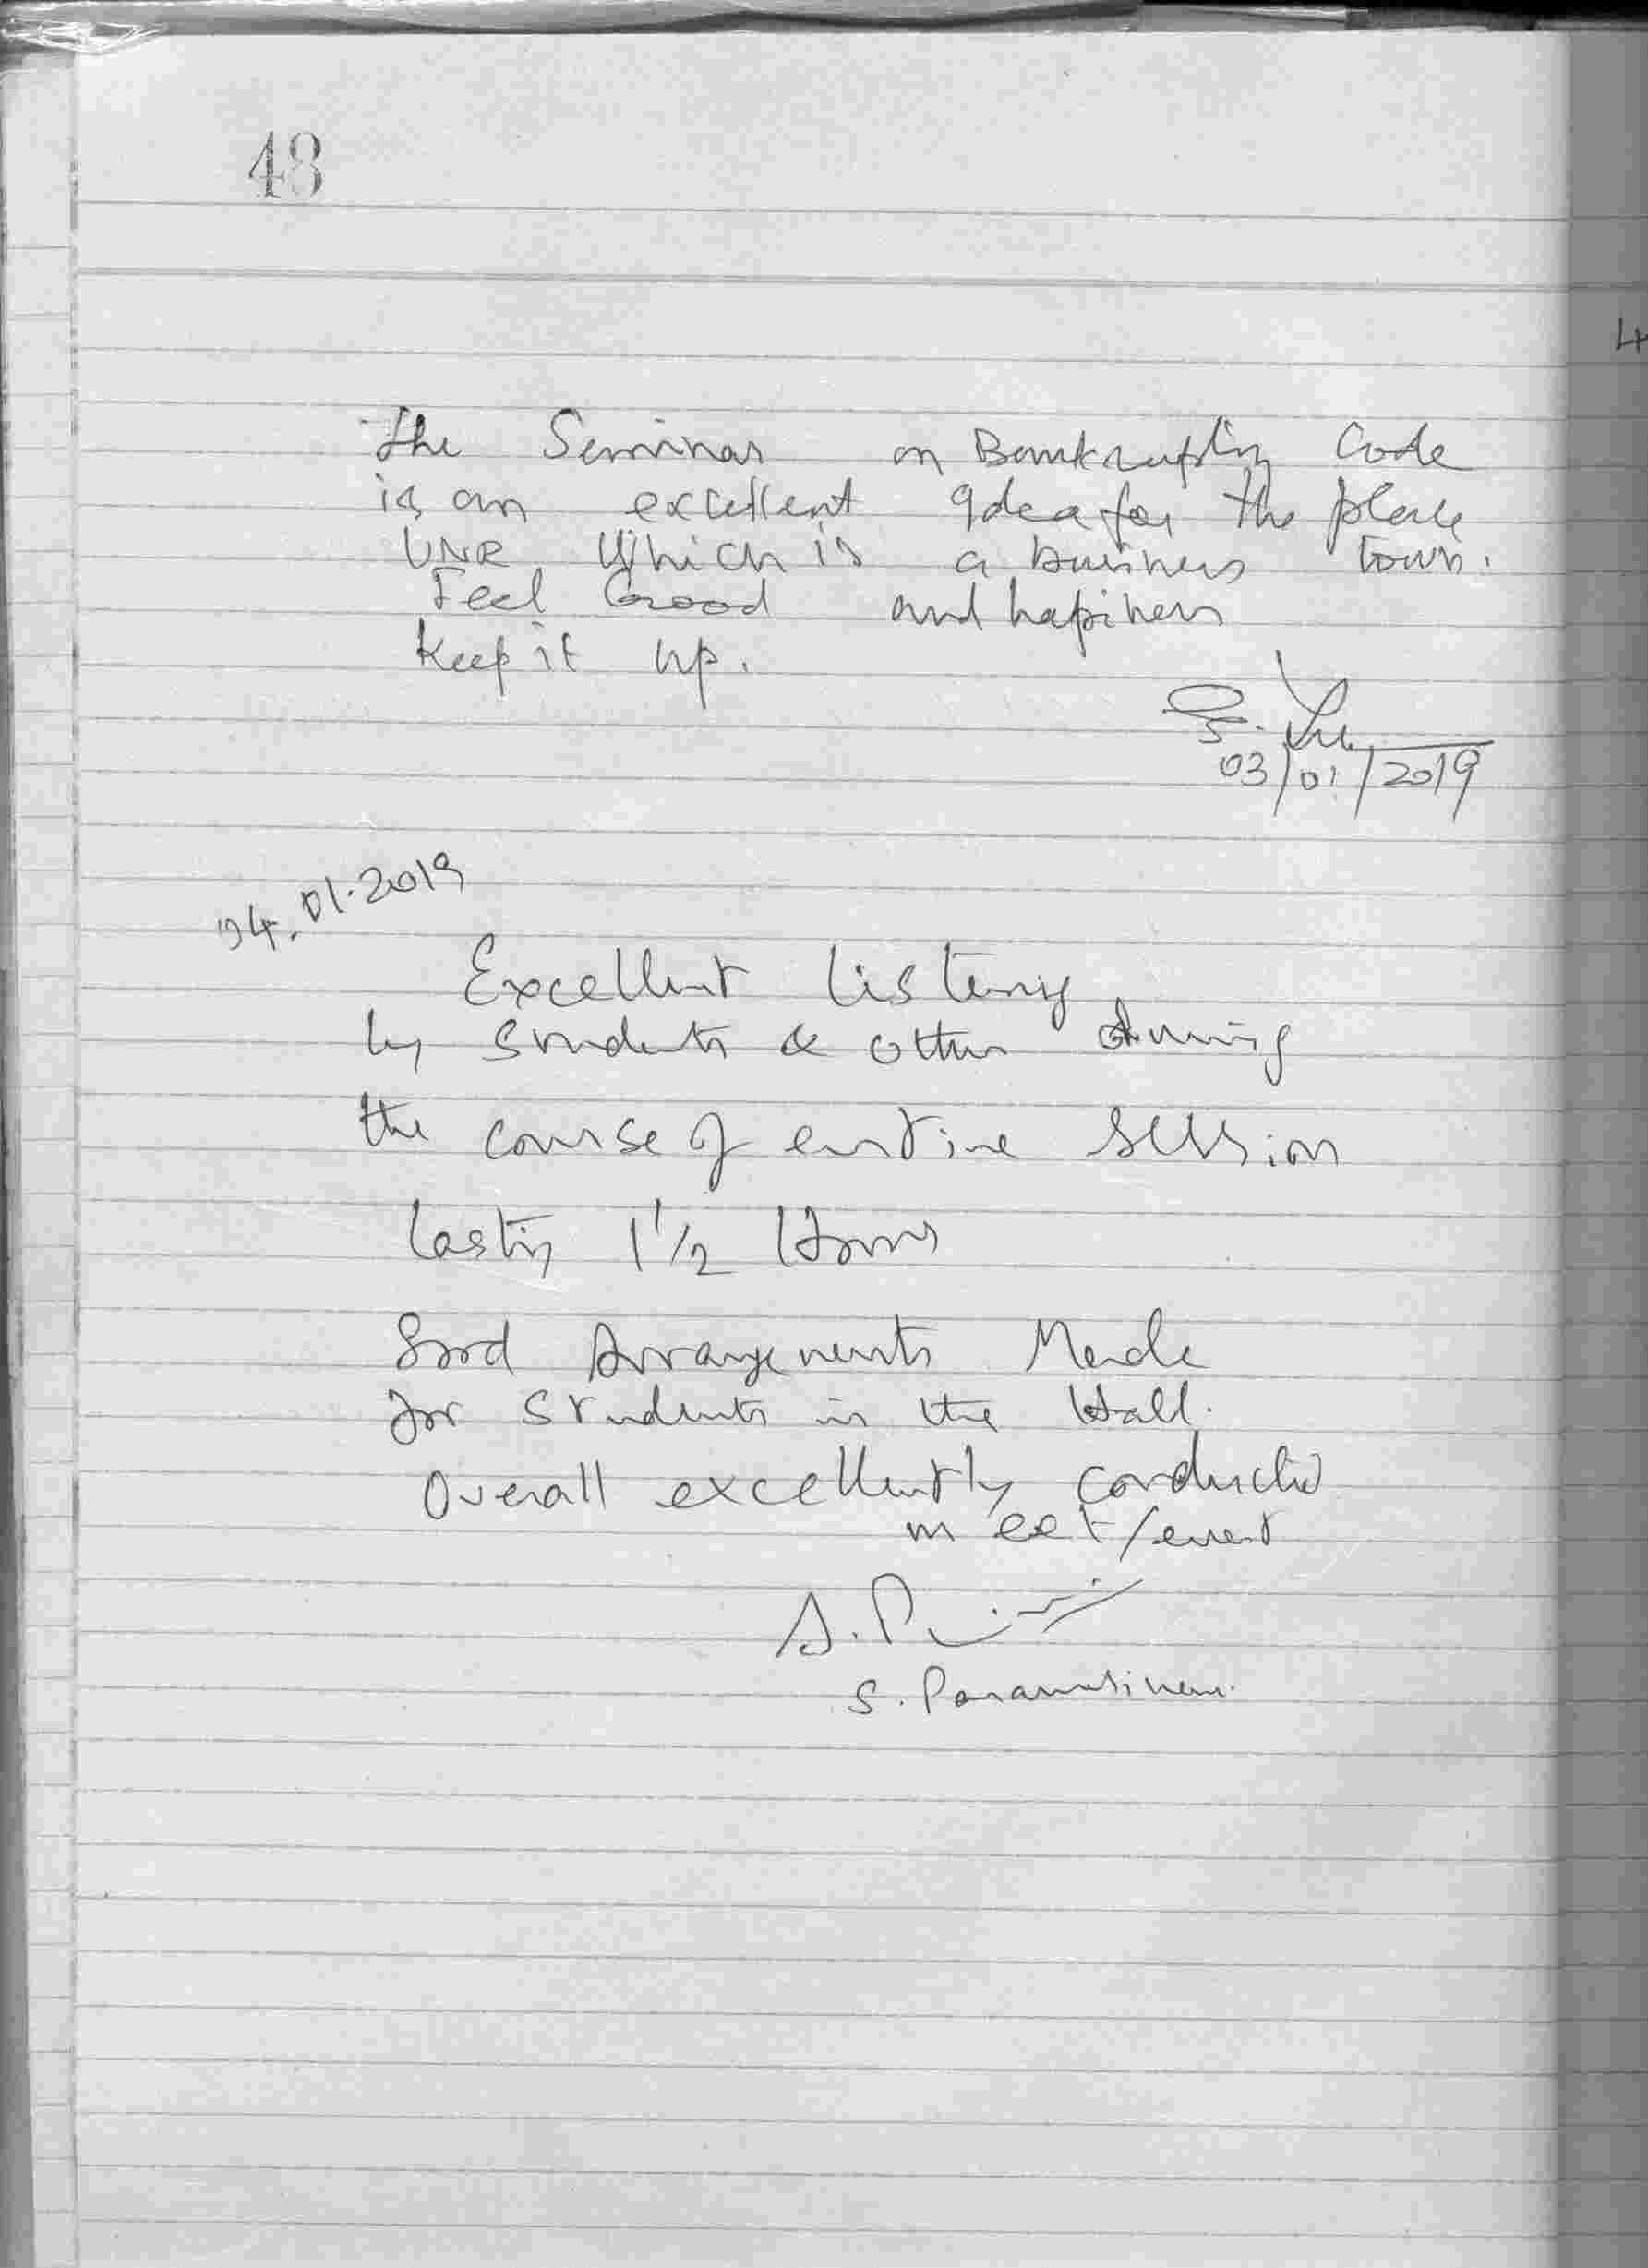 48
The Seminar on Bankruptcy Code
is an excellent Idea for the place
VNR which is a business town.
Feel Good and happiness
Keep it up.
03/01/2019
04.01.2019
Excellent Listening
by students & others during
the course of entire session
lasting 1 1/2 Hours
Good Arrangements Made
for students in the Hall.
Overall excellently conducted
meet/event
S. Paramasivam.